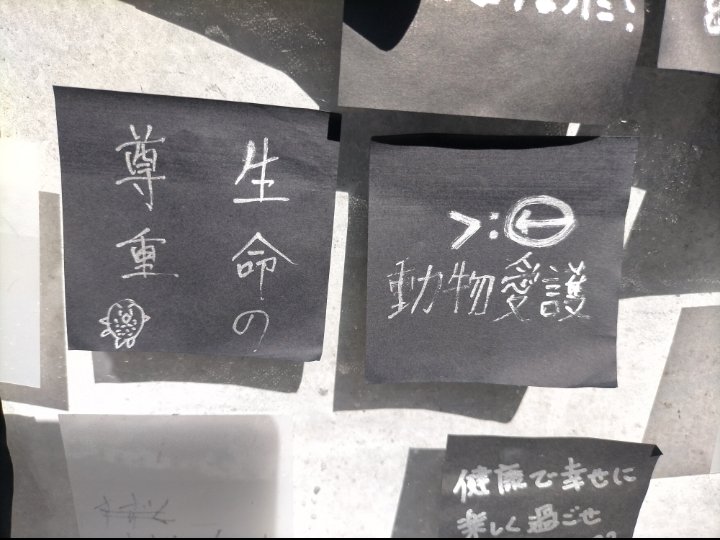 生命の
尊重
>:
動物愛護
健康で幸せに
楽しく過ごせ